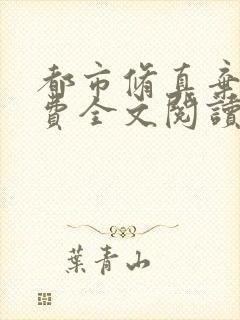 都市脩真棄
費全文閱讀
葉青山